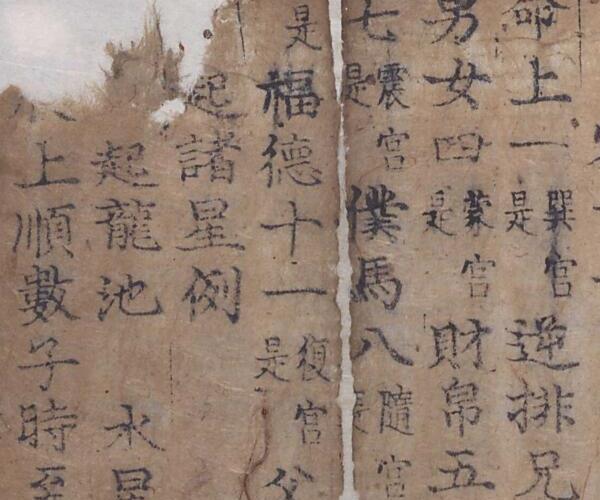 命上一巽宫是逆排兄
男女四蒙宫是財帛五
七震宫是僕馬八隨宫是
是福德十一復宫是父
起諸星例
起龍池 水星
上順數子時至